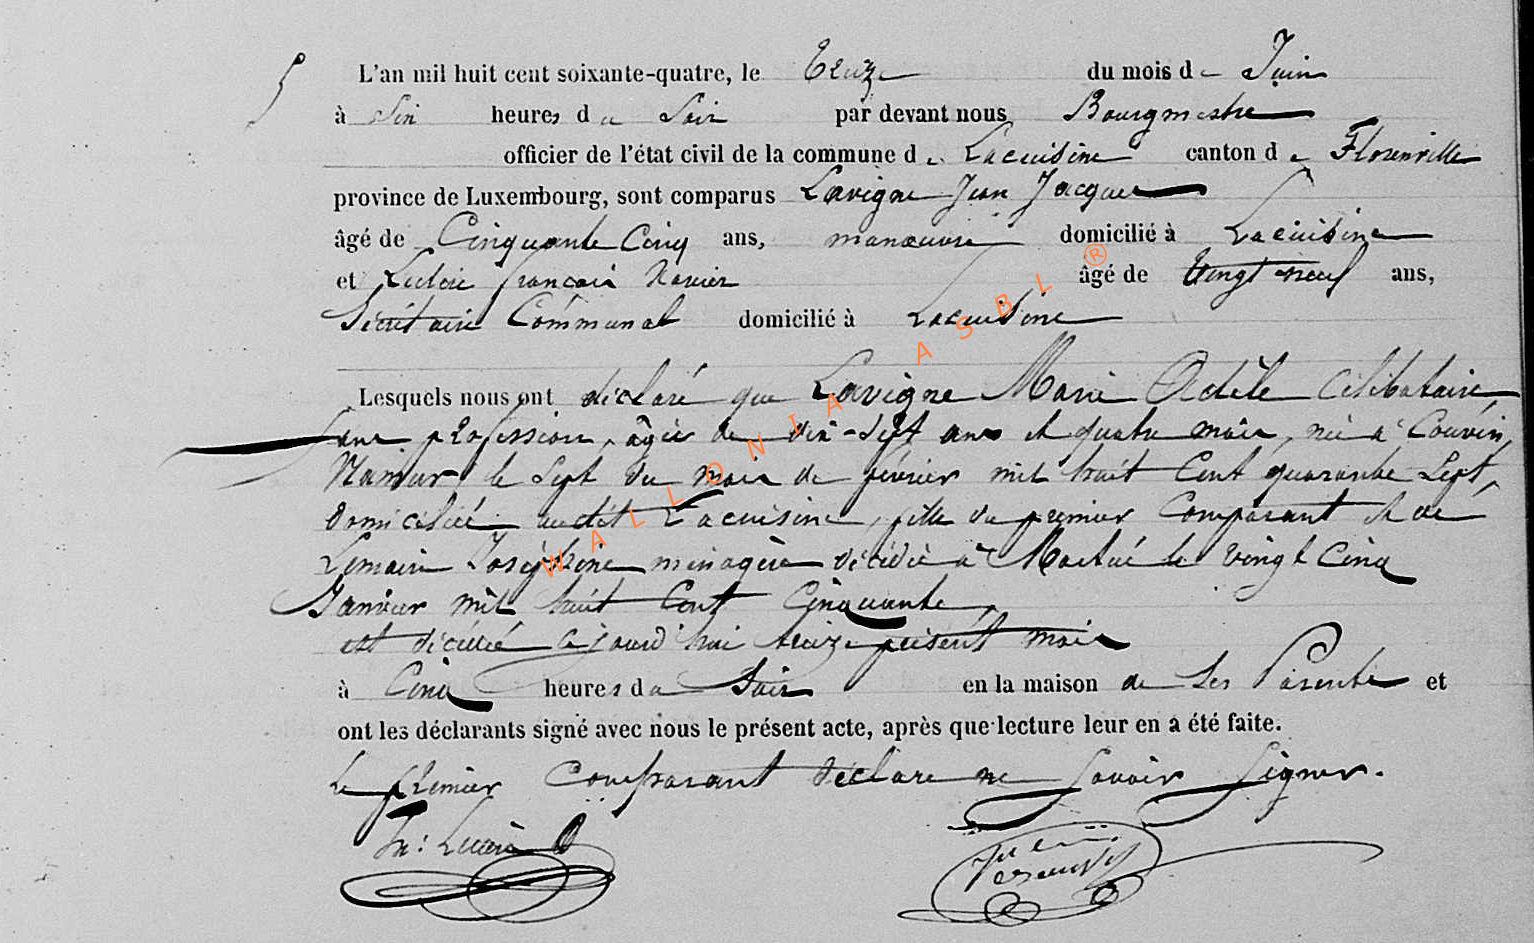 5
L'an mil huit cent soixante-quatre, le treize du mois de Juin
à Six heures du Soir par devant nous Bourgmestre
officier de l'état civil de la commune de Lacuisine canton de Florenville
province de Luxembourg, sont comparus Lavigne Jean Jacques
âgé de Cinquante Cinq ans, manœuvre domicilié à Lacuisine
et François Xavier âgé de Vingt neuf ans,
Secrétaire Communal domicilié à Lacuisine
Lesquels nous ont déclaré que Lavigne Marie Adèle Célibataire,
Sans profession, âgée de dix-Sept ans et quatre mois, née à Couvin,
Namur, le Sept du mois de février mil huit Cent quarante Sept,
domiciliée audit Lacuisine, fille du premier Comparant et de
Lemaire Joséphine ménagère décédée à le vingt Cinq
Janvier mil huit Cent Cinquante,
est décédée ajourd'hui treize présent mois
à Cinq heures du Soir en la maison de Ses Parents et
ont les déclarants signé avec nous le présent acte, après que lecture leur en a été faite.
Le premier Comparant déclare ne Savoir Signer.
WALLONIA ASBL ®